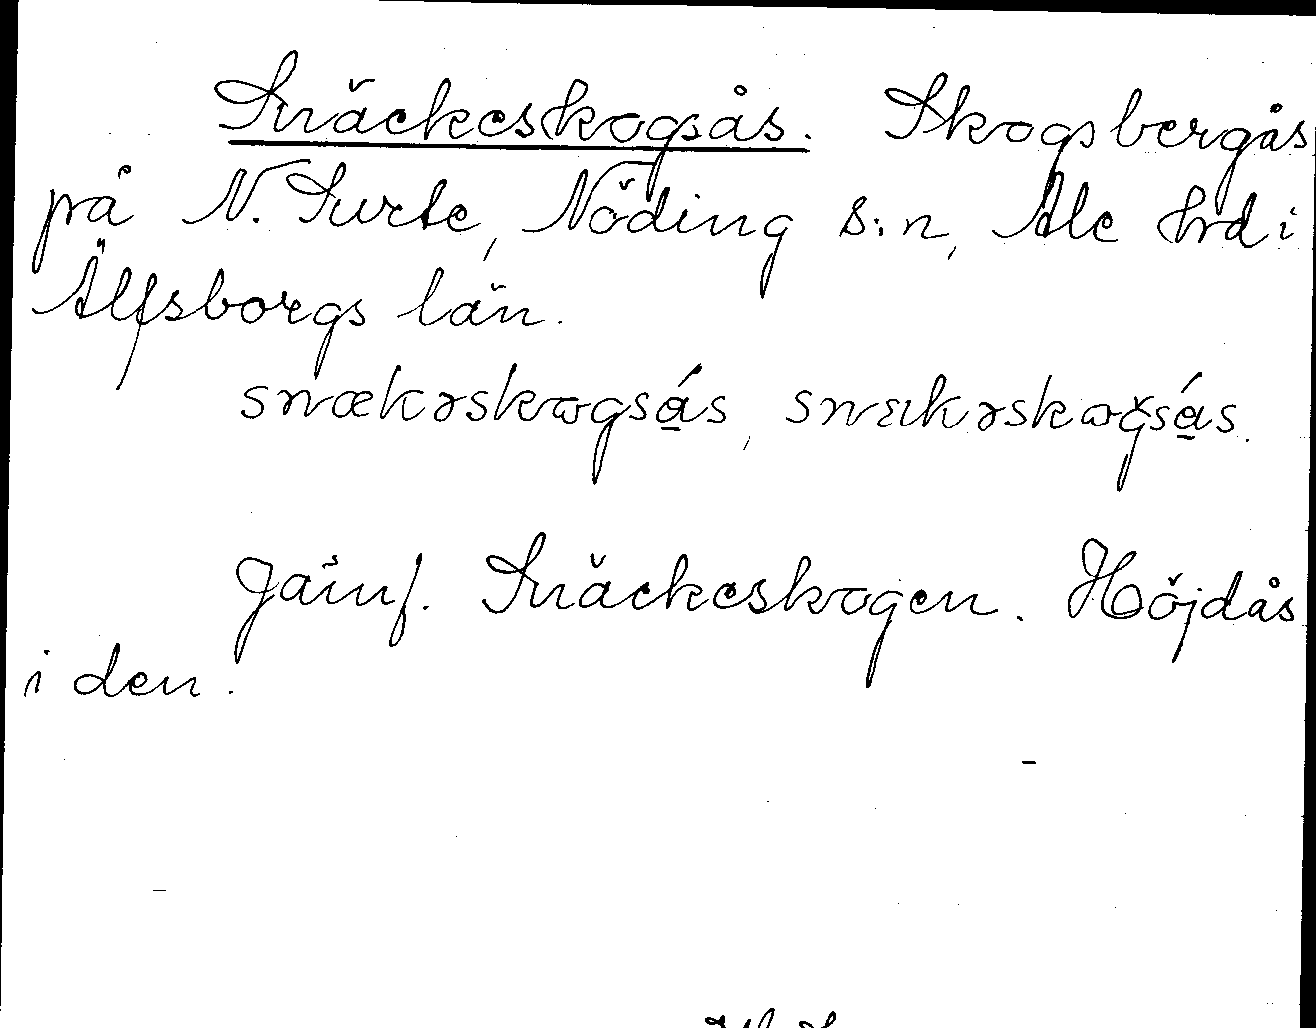 Snäckeskogsås. Skogsbergås
på N. Surte, Nödinge s:n, Ale hrd i
Älfsborgs län.
snækəskogsás, snækəskogsás.
Jämf. Snäckeskogen. Höjdås
i den.